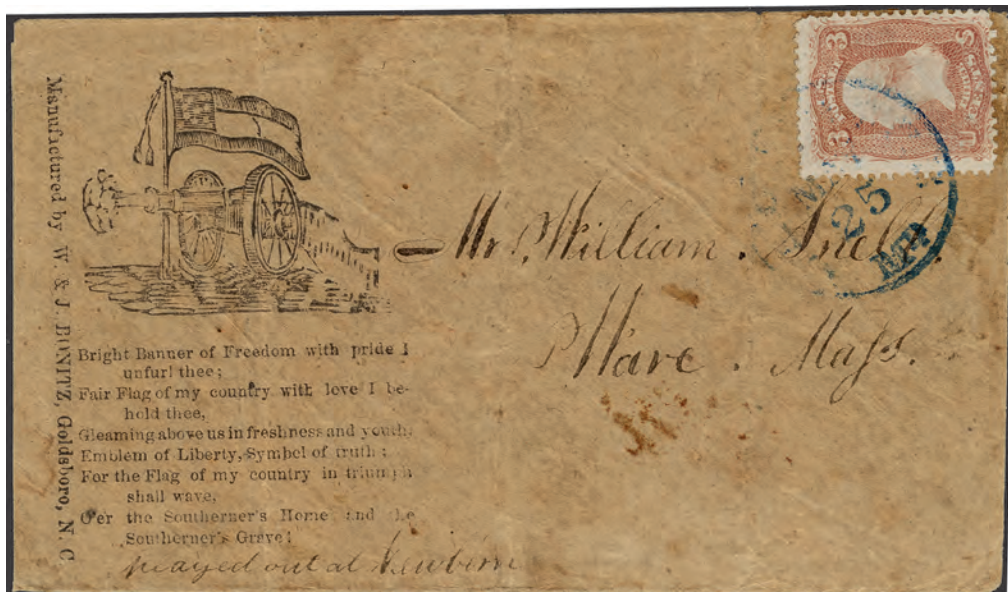 Manufactured by W. & J. BONITZ, Goldsboro, N. C
Bright Banner of Freedom with pride I
unfurl thee;
Fair Flag of my country with love I be-
hold thee,
Gleaming above us in freshness and youth;
Emblem of Liberty, Symbol of truth;
For the Flag of my country in triumph
shall wave,
O'er the Southerner's Home and the
Southerner's Grave!
played out at Newbern
Mr. William. Snell.
Ware. Mass.
3 3
25